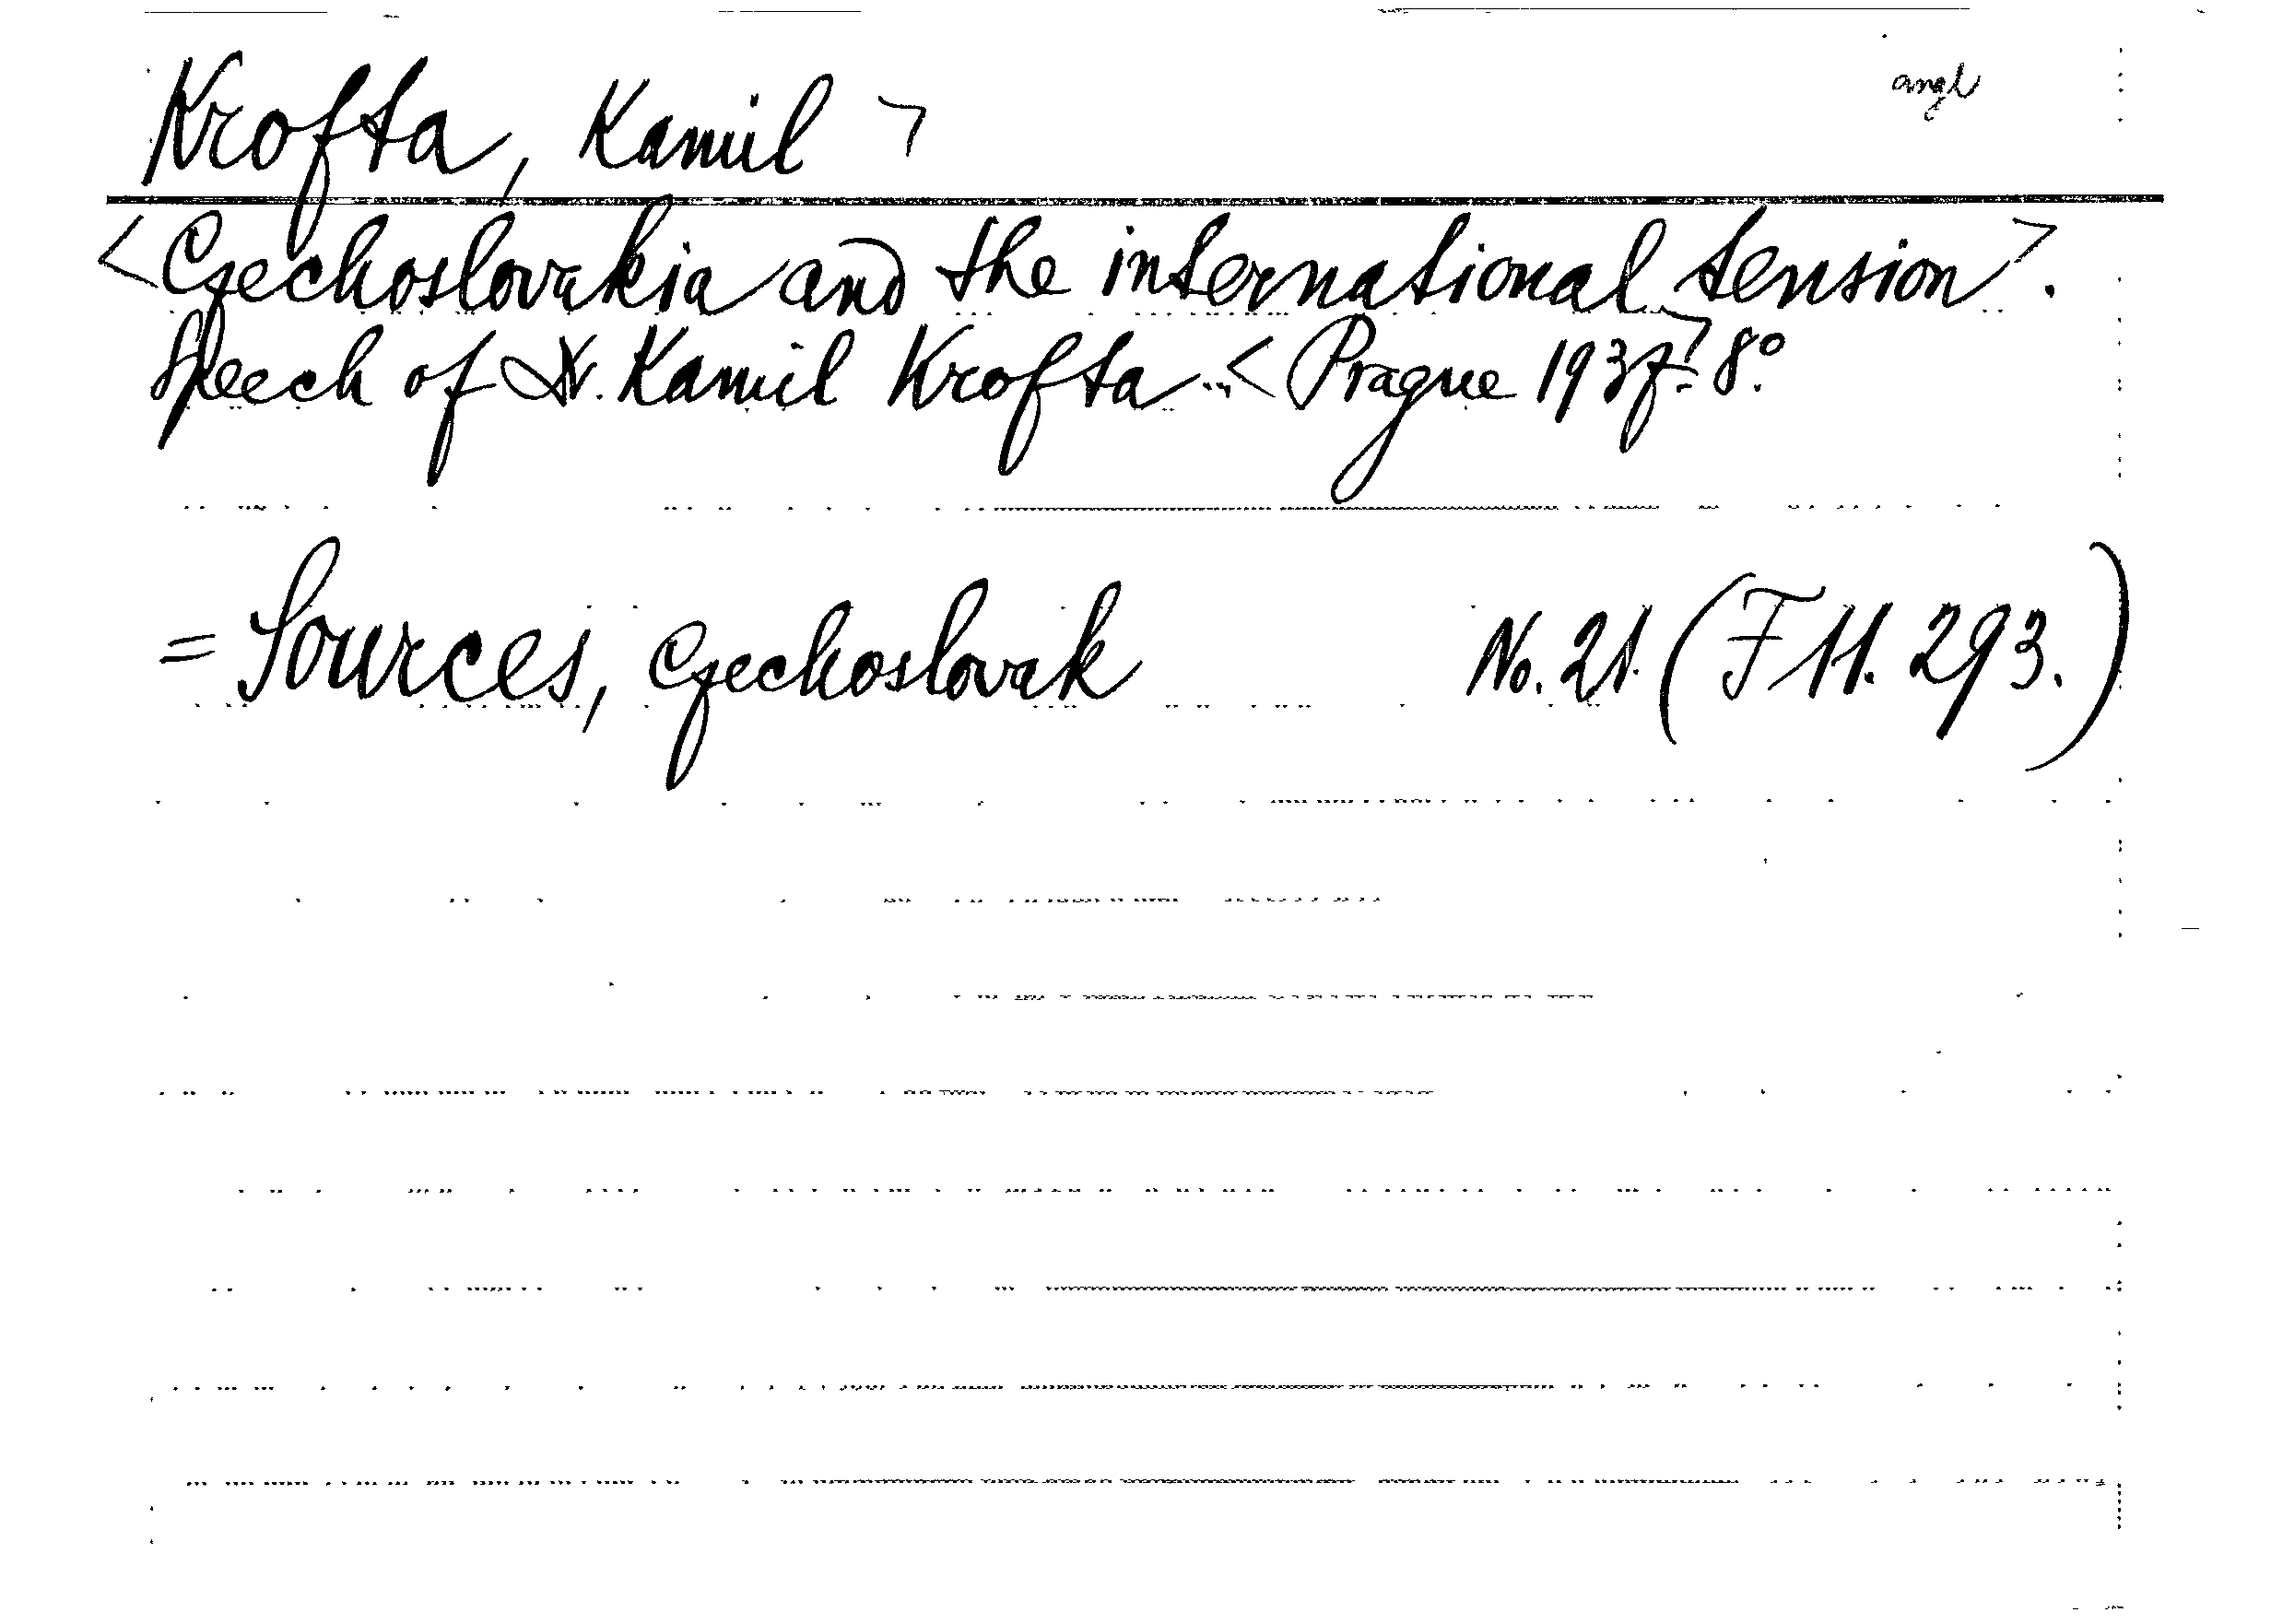 angl
Krofta, Kamil >
<Czechoslovakia and the international tension>.
Speech of Dr. Kamil Krofta... <Prague 1937.> 8°.
= Sources, Czechoslovak No. 21. (F 11. 293.)